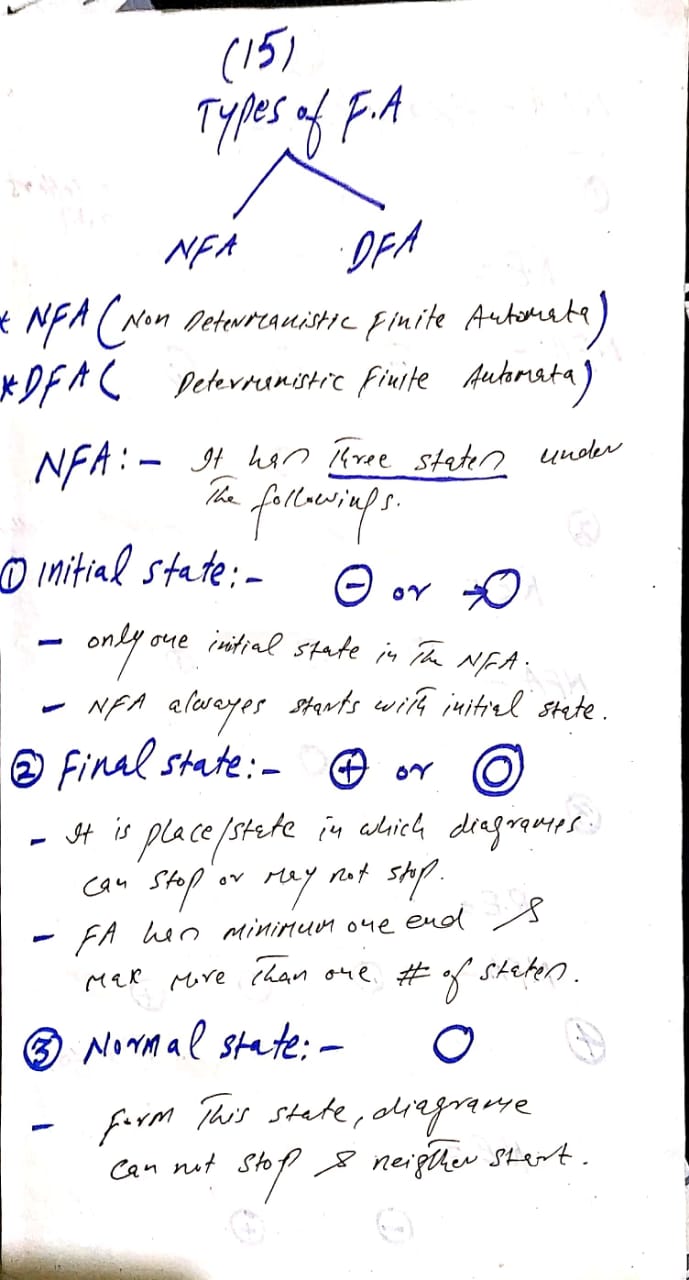 (15)
Types of F.A
NFA DFA
* NFA (Non Determanistic Finite Automata)
* DFA ( Determenistic Finite Automata)
NFA:- It has Three states under
The followings.
① Initial state:- ⊖ or →○
- only one initial state in The NFA.
- NFA alwayes starts with initial state.
② Final state:- ⊕ or ◎
- It is place/state in which diagrames
can stop or may not stop.
- FA has minimum one end &
max more Than one # of states.
③ Normal state:- ○
- form This state, diagrame
can not stop & neigther start.